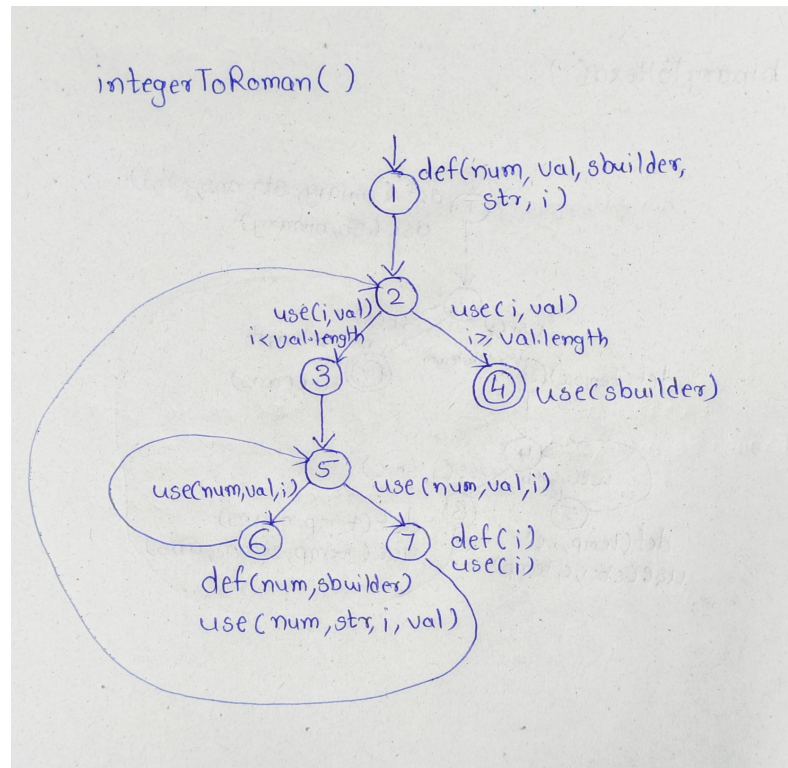 integerToRoman( )
def(num, val, sbuilder,
str, i)
1
2
use(i,val)
i<val.length
use(i, val)
i≥ val.length
3
4
use(sbuilder)
5
use(num,val,i)
use(num,val,i)
6
7
def(i)
use(i)
def(num,sbuilder)
use(num,str,i,val)